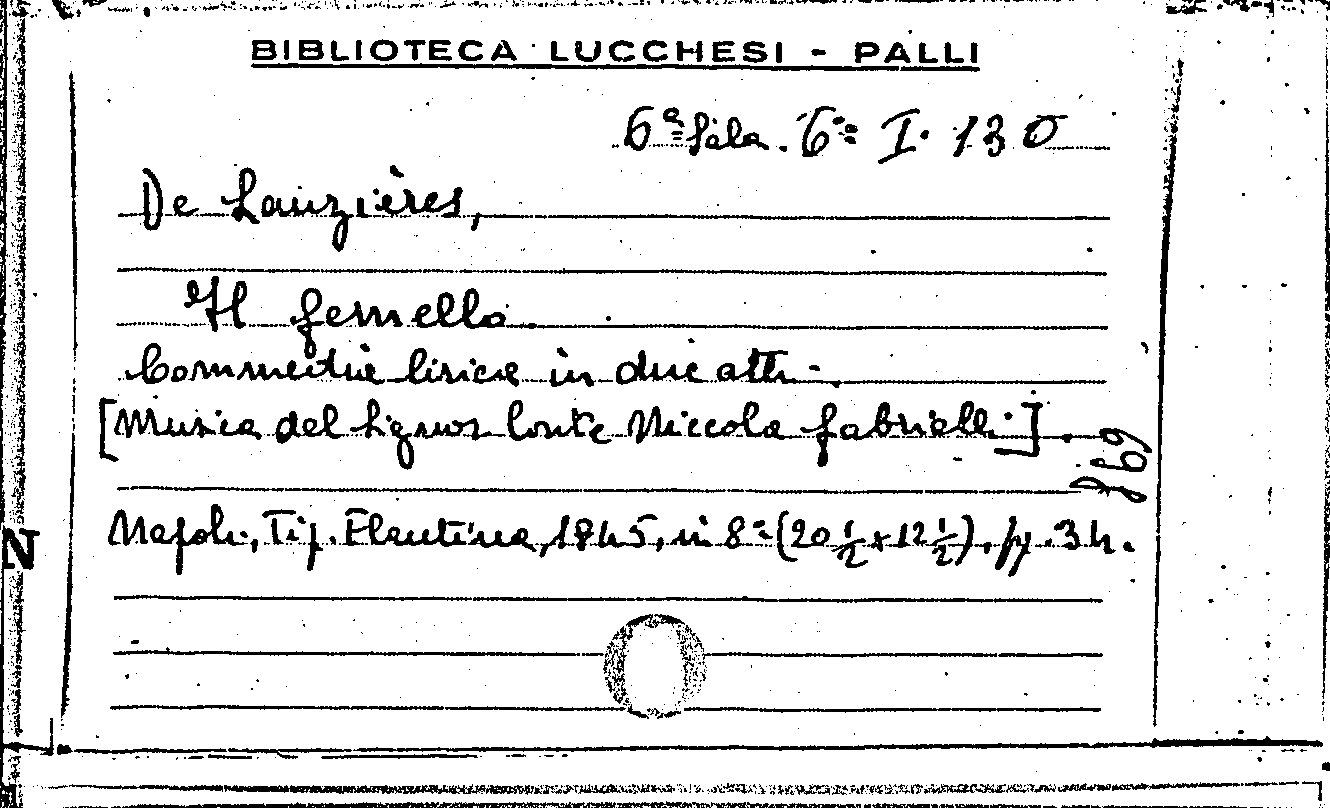 BIBLIOTECA LUCCHESI - PALLI
6ª Sala. 6= I. 130
De Lauzières,
Il gemello.
Commedia lirica in due atti -.
[Musica del Signor Conte Niccola Gabrielli].
Napoli, Tip. Flautina, 1845, in 8° (20 1/2 x 12 1/2), pp. 34.
N